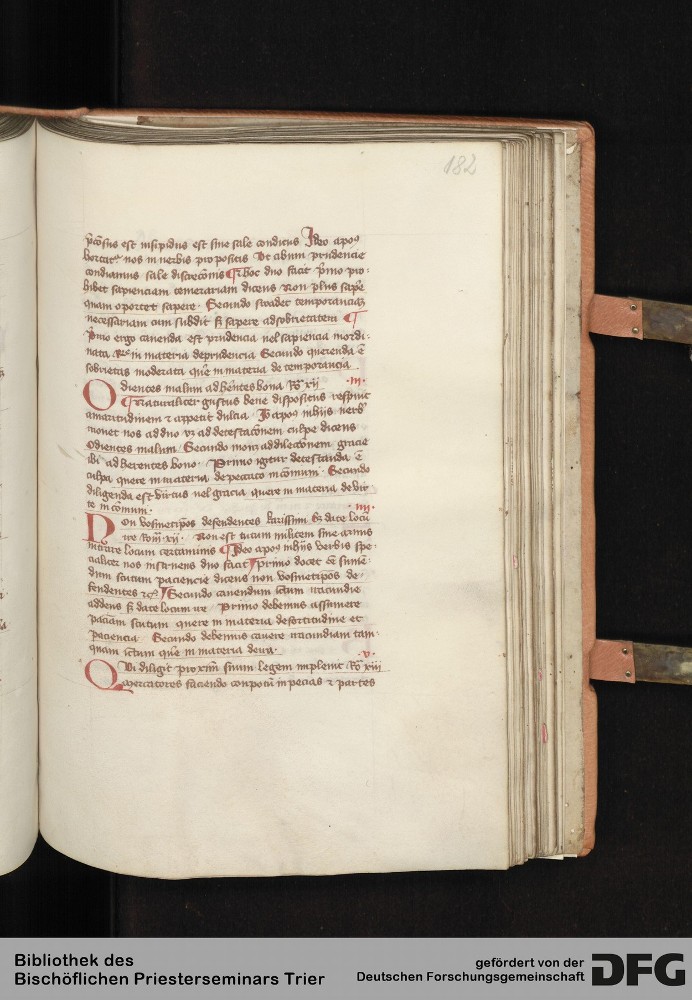 182
est insipidus est sine sale conditus Ideo apo9
hortatr nos in verbis propositis Ut cibum prudencie
condiamus sale discrecionis ¶ Et hoc duo facit primo pro-
hibet sapienciam temerariam dicens Non plus sapere
quam oportet sapere. Secundo suadet temporanciam
necessariam cum subdit sed sapere ad sobrietatem ¶
Primo ergo cavenda est prudencia vel sapiencia inordi-
nata Re in materia de prudencia Secundo querenda est
sobrietas moderata quere in materia de temporancia
Odientes malum adherentes bona Ro xii .iii.
¶ Naturaliter gustus bene dispositus respuit
amaritudinem et appetit dulcia Io apo9 in hijs verbis
monet nos ad duo vz ad detestacionem culpe dicens
Odientes malum Secundo monet ad dilectionem gracie
ibi adherentes bono. Primo igitur detestanda est
culpa quere in materia de peccato in communi. Secundo
diligenda est virtus vel gracia quere in materia de vir-
te in communi. .iiii.
Non vosmetipsos defendentes karissimi sed date locum
ire Roma xii. Non est tutum militem sine armis
intrare locum certaminis ¶ Ideo apo9 in hijs verbis spe-
cialiter nos instruens duo facit ¶ primo docet esse sumen-
dum scutum paciencie dicens non vosmetipsos de-
fendentes etc ¶ Secundo cavendum ictum iracundie
addens sed date locum ire Primo debemus assumere
paciencie scutum quere in materia de fortitudine et
paciencia Secundo debemus cavere iracundiam tam-
quam ictum quere in materia de ira. .v.
Qui diligit proximum suum legem implevit Ro xiii
Mercatores faciendo conpotum in pecias et partes
Bibliothek des
Bischöflichen Priesterseminars Trier
gefördert von der
Deutschen Forschungsgemeinschaft
DFG